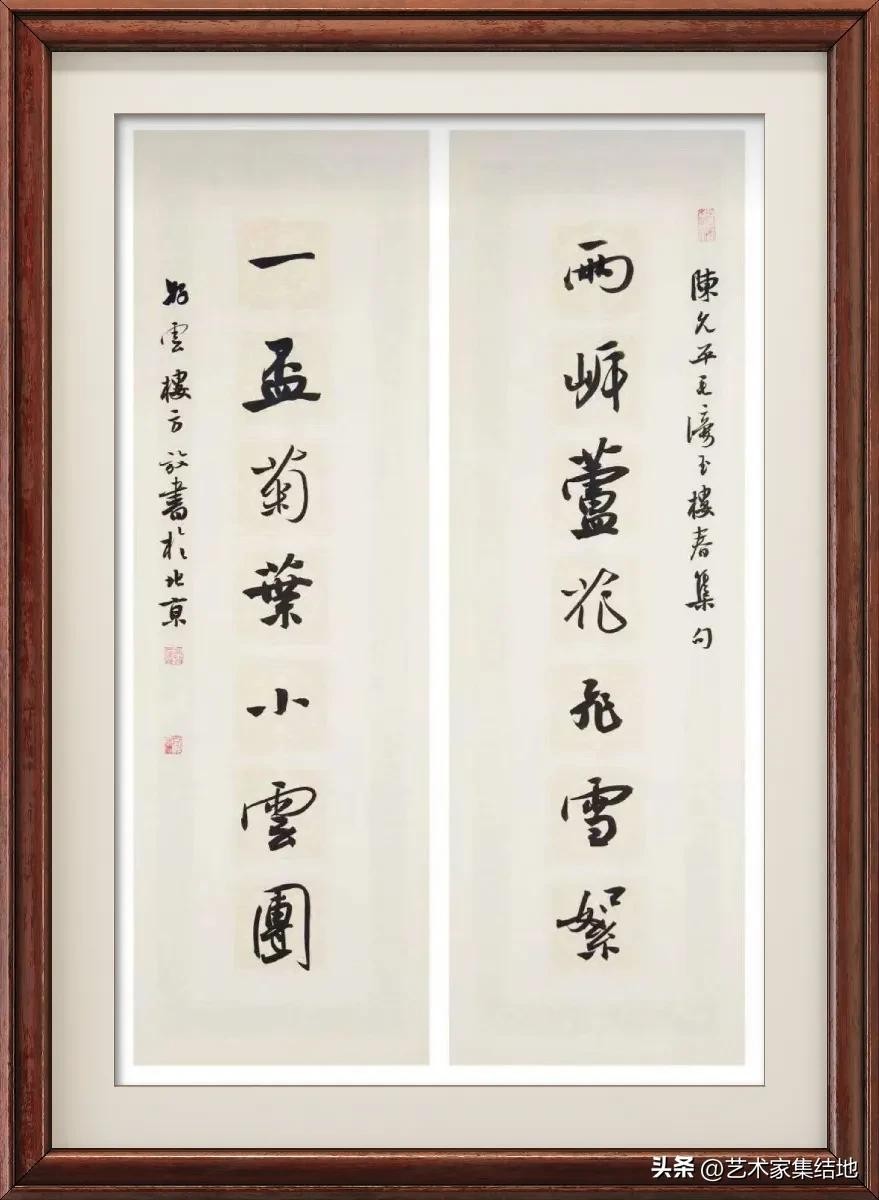 陳允平毛滂玉樓春集句
兩岸蘆花飛雪絮
一盃菊葉小雲團
好雲樓方放書於北京
头条 @艺术家集结地